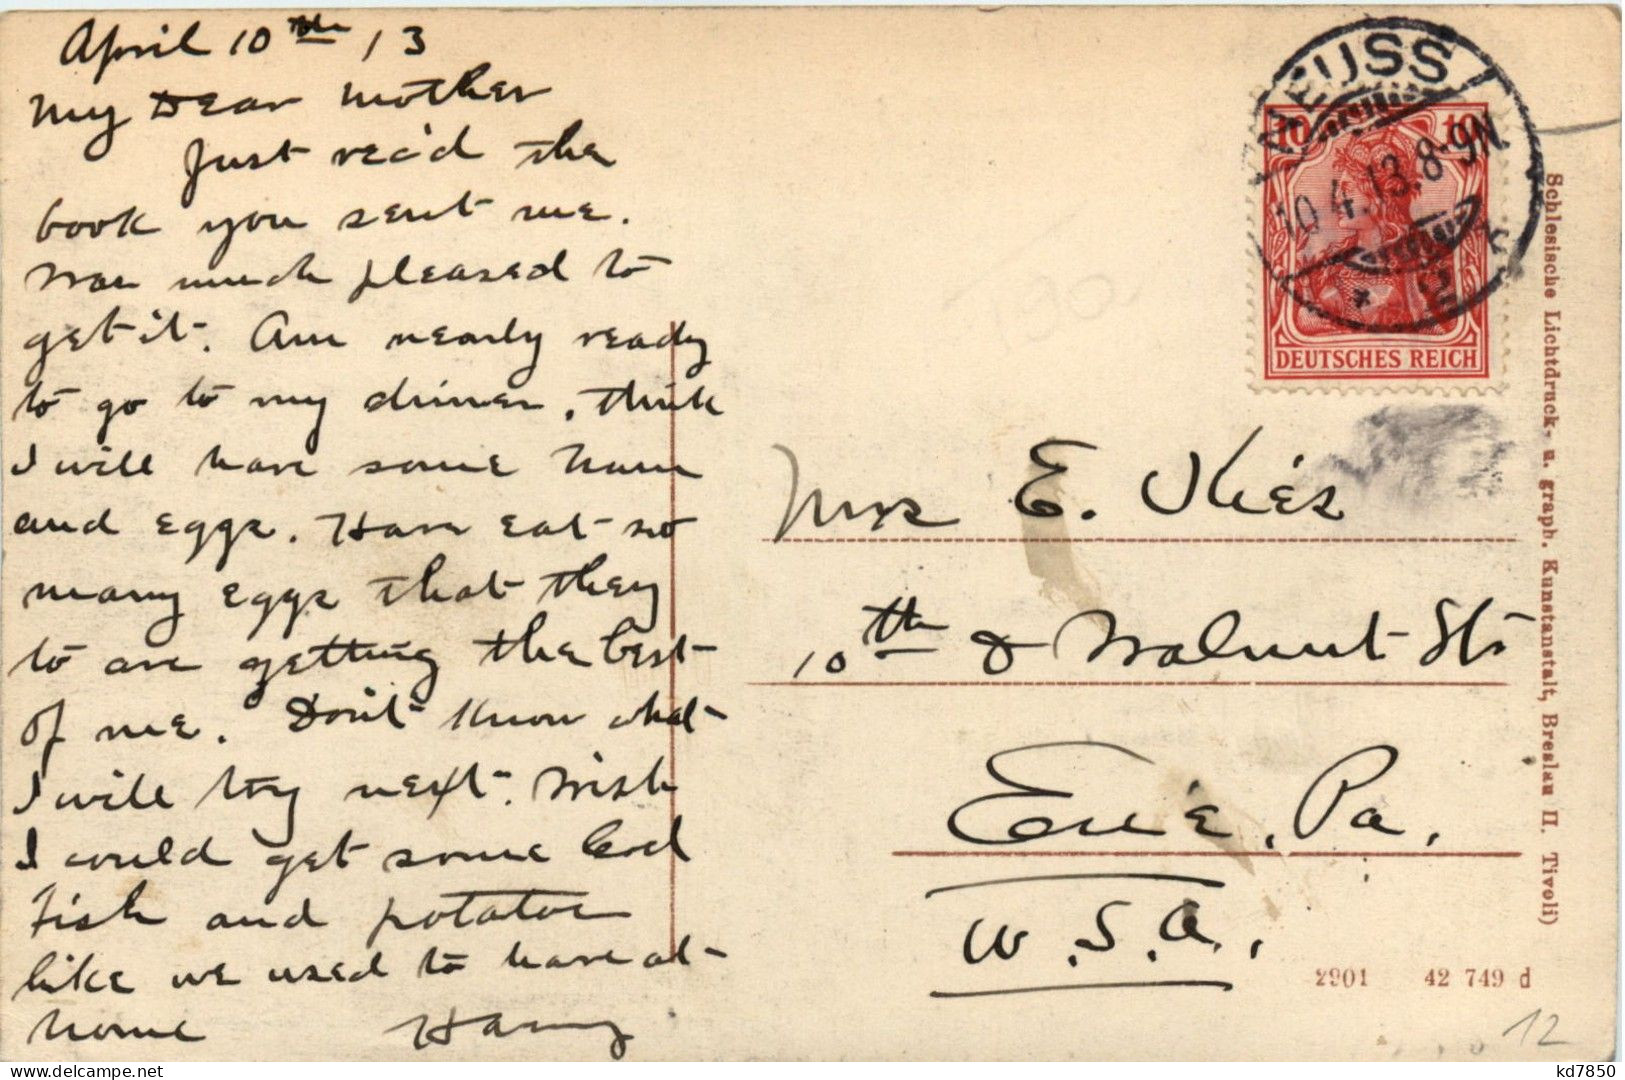 April 10th 13
My Dear mother
Just rec'd the
book you sent me.
Was much pleased to
get it. Am nearly ready
to go to my dinner. think
I will have some ham
and eggs. Have eat so
many eggs that they
to are getting the best
of me. Don't know what
I will try next. Wish
I could get some Cod
Fish and potatoe
like we used to have at
home Harry
NEUSS
10.4.13.8-9N
* 2
10 10
DEUTSCHES REICH
Mrs E.
10th & Walnut Sts
Erie, Pa.
U.S.A.
Schlesische Lichtdruck- u. graph. Kunstanstalt, Breslau II. Tivoli)
2901 42 749 d
12
kd7850